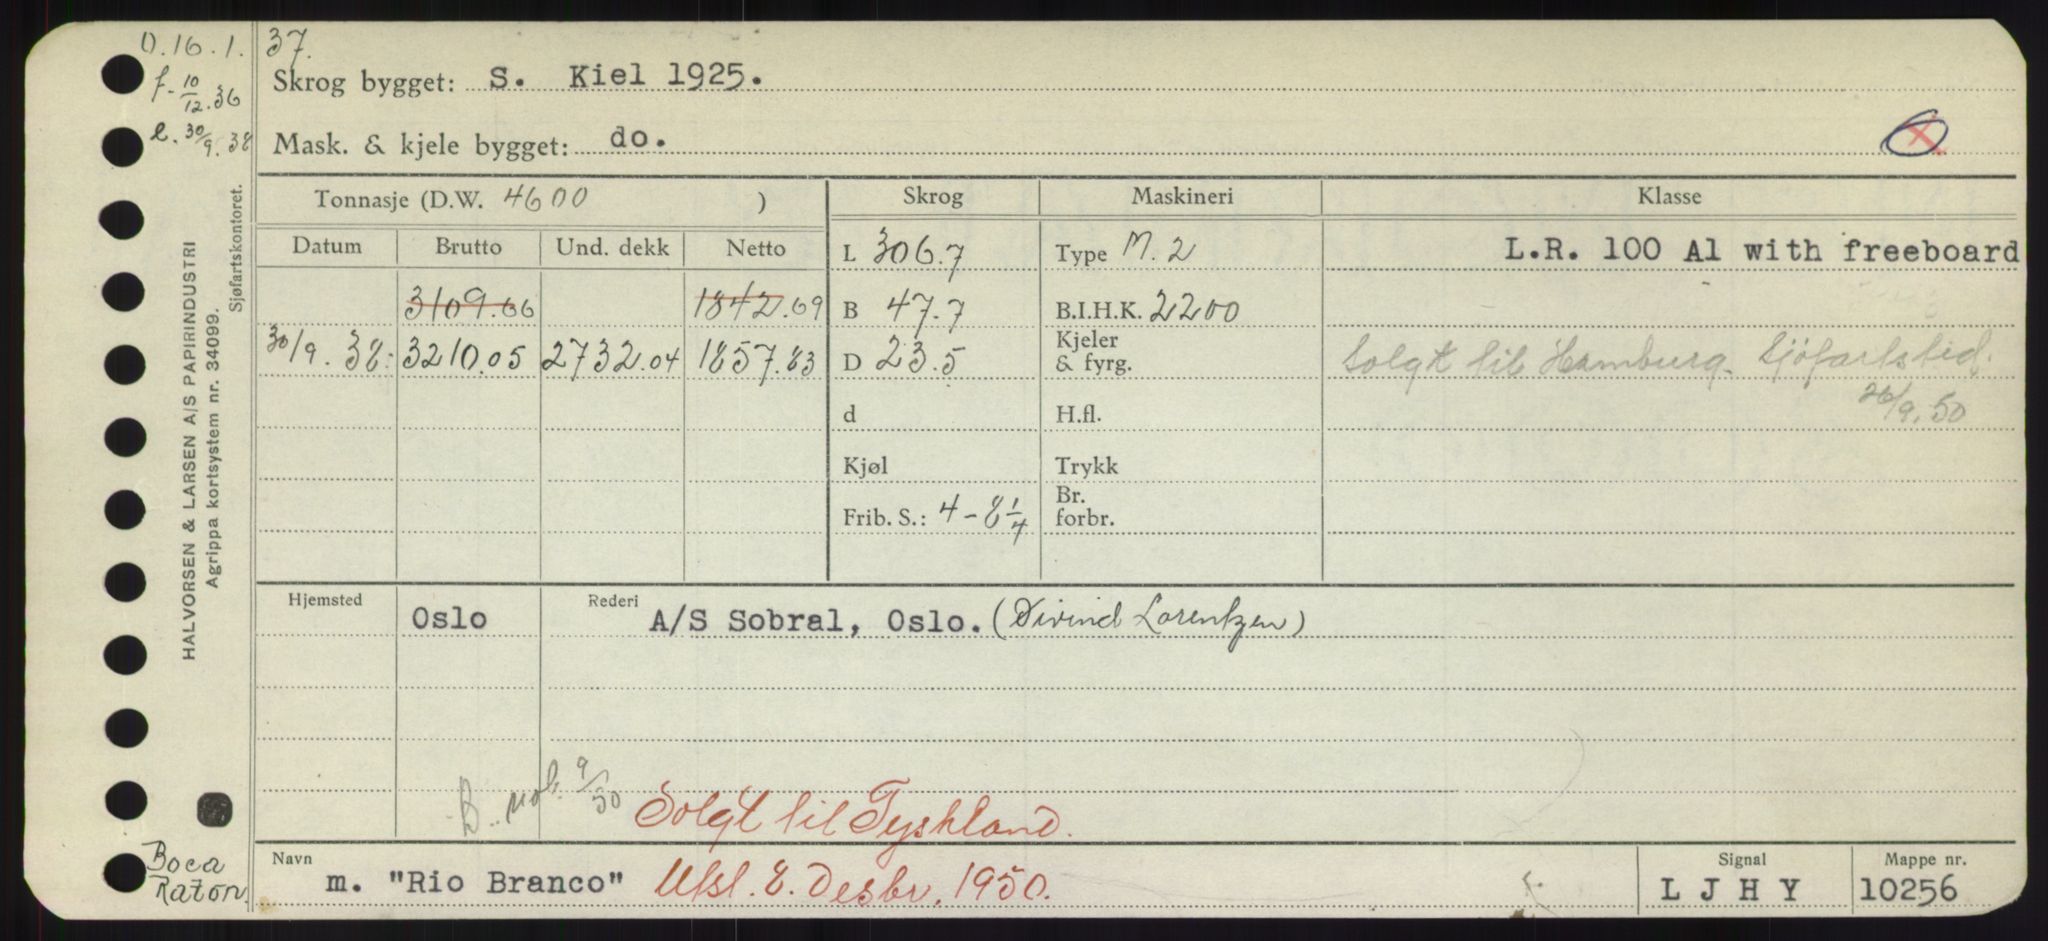 D. 16. 1. 37.
f. 10/12. 36
e. 30/9. 38
Skrog bygget: S. Kiel 1925.
Mask. & kjele bygget: do.
Tonnasje (D.W. 4600 ) Skrog Maskineri Klasse
Datum Brutto Und. dekk Netto L 306.7 Type M. 2 L.R. 100 A1 with freeboard
3109.66 1842.69 B 47.7 B.I.H.K. 2200
30/9. 38: 3210.05 2732.04 1857.83 D 23.5 Kjeler & fyrg. Solgt til Hamburg. Sjöfartstid.
26/9. 50
d H.fl.
Kjøl Trykk
Frib. S.: 4-8 1/4 Br. forbr.
Hjemsted Oslo Rederi A/S Sobral, Oslo. (Øivind Lorentzen)
B. 9/50 Solgt til Tyskland.
Navn m. "Rio Branco" Utsl. 8. Desbr. 1950. Signal L J H Y Mappe nr. 10256
Boca Raton
HALVORSEN & LARSEN A/S PAPIRINDUSTRI
Agrippa kortsystem nr. 34099.
Sjøfartskontoret.